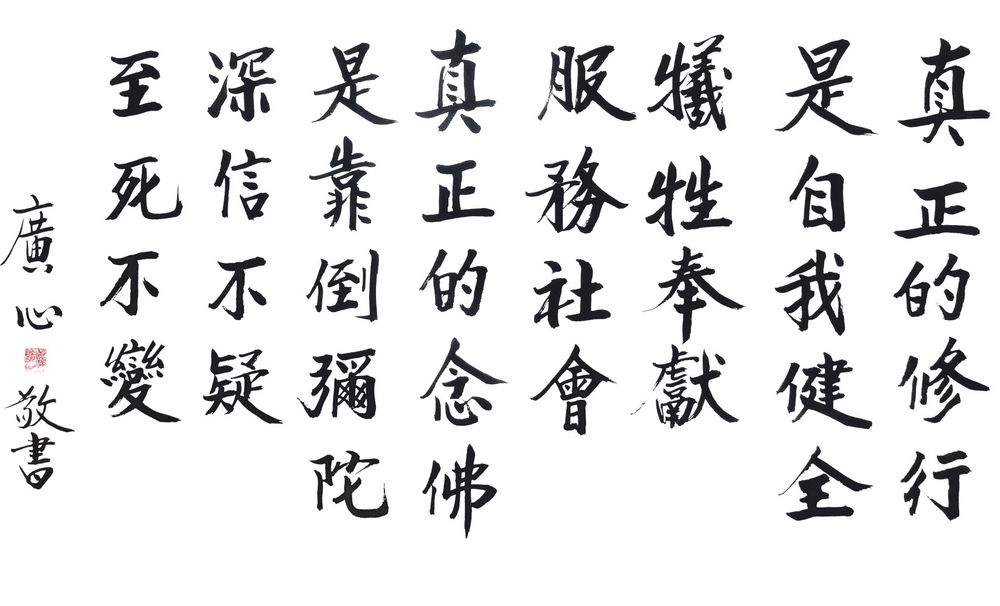 真正的修行
是自我健全
犧牲奉獻
服務社會
真正的念佛
是靠倒彌陀
深信不疑
至死不變
廣心敬書